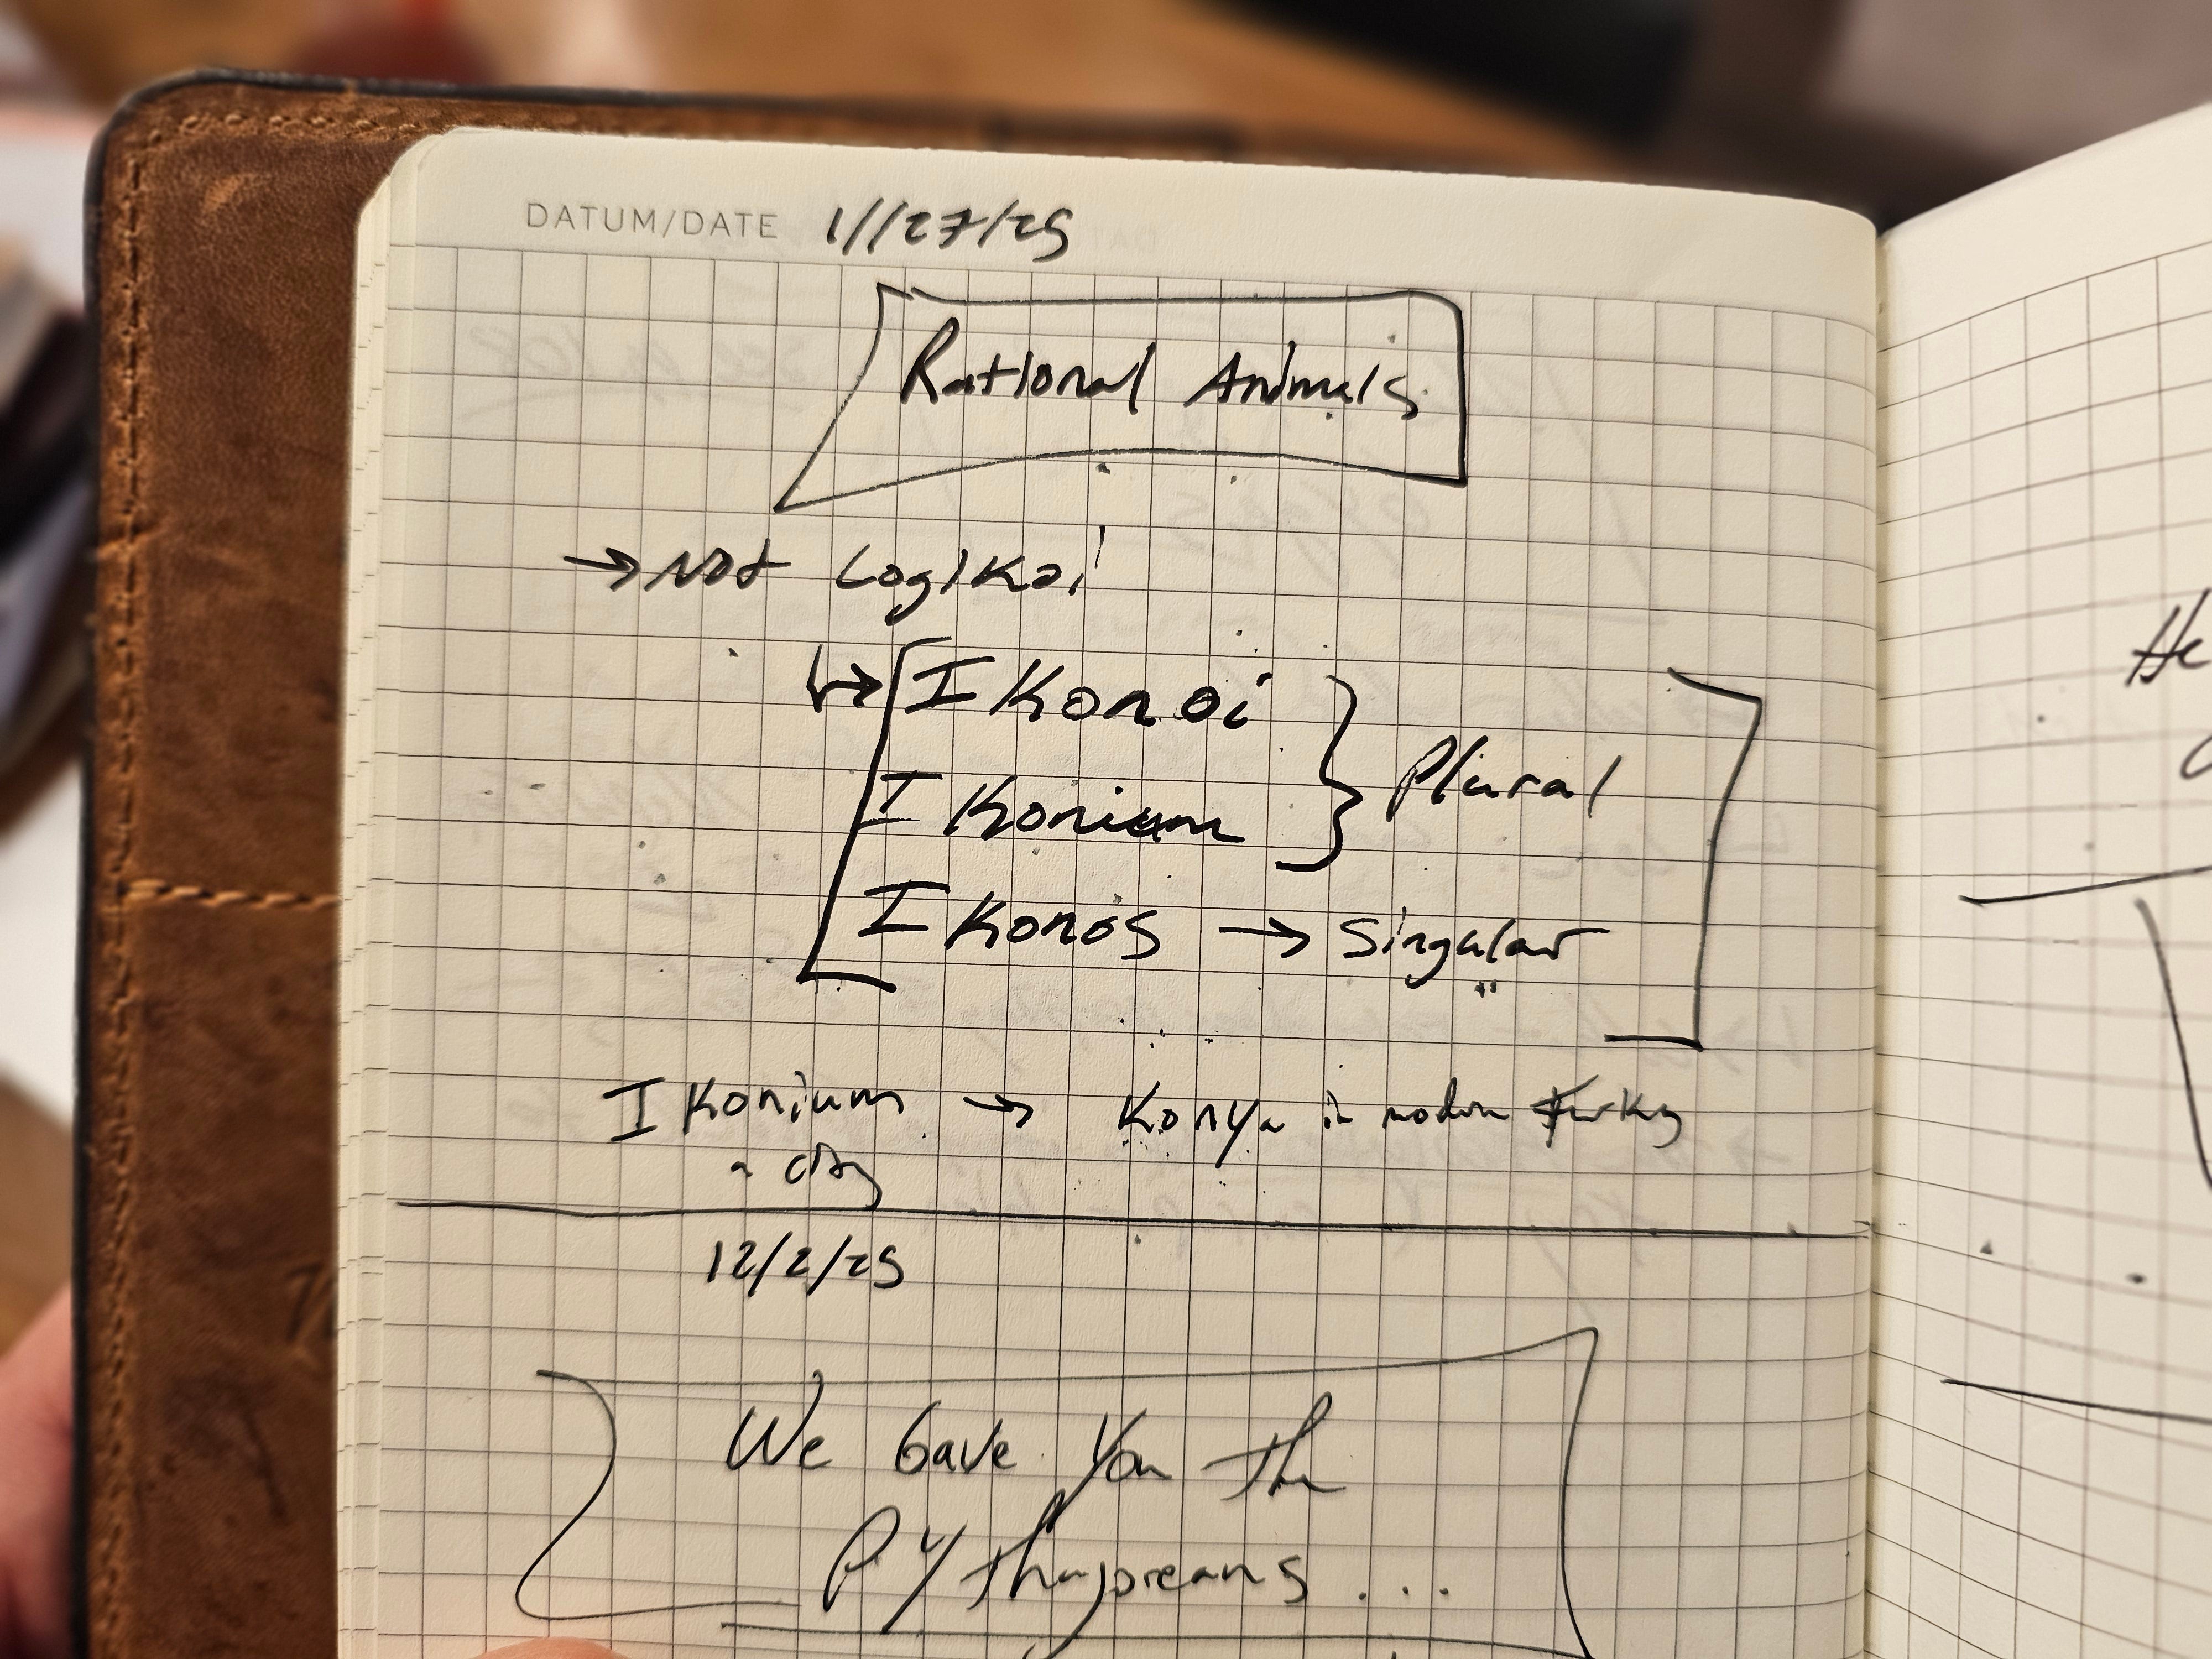 DATUM/DATE 11/27/25
Rational Animals
→ Not Logikoi
↳→ IKonoi
IKonium } Plural
IKonos → Singular
IKonium → Konya in modern Turkey
a city
12/2/25
We Gave You the
Pythagoreans ...
He